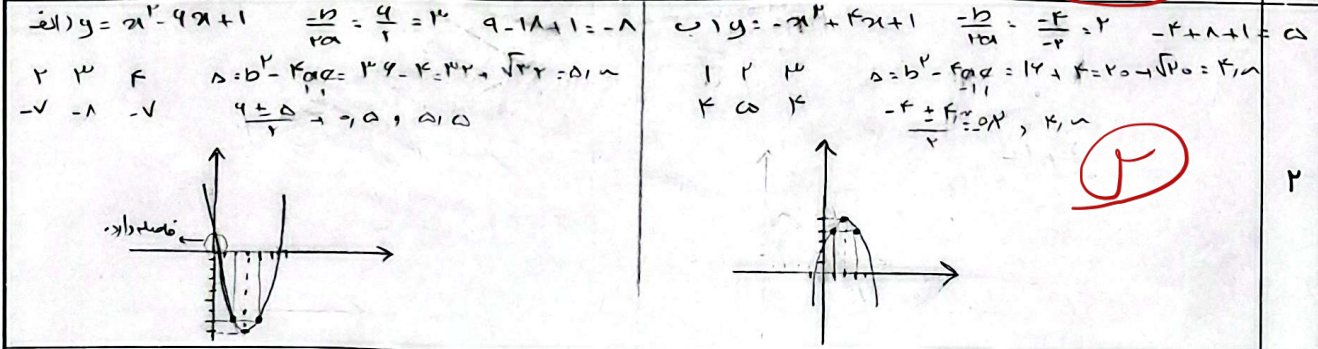 الف) y = x² - ۶x + ۱   -b/۲a = ۶/۲ = ۳   ۹ - ۱۸ + ۱ = -۸
۲ ۳ ۴   Δ = b² - ۴ac = ۳۶ - ۴ = ۳۲ → √۳۲ = ۵,۷
-۷ -۸ -۷   ۶ ± ۵/۲ → ۰,۵ , ۵,۵
فاصله دارد.
ب) y = -x² + ۴x + ۱   -b/۲a = -۴/-۲ = ۲   -۴ + ۸ + ۱ = ۵
۱ ۲ ۳   Δ = b² - ۴ac = ۱۶ + ۴ = ۲۰ → √۲۰ = ۴,
۴ ۵ ۴   -۴ ± ۴,
۲
۲